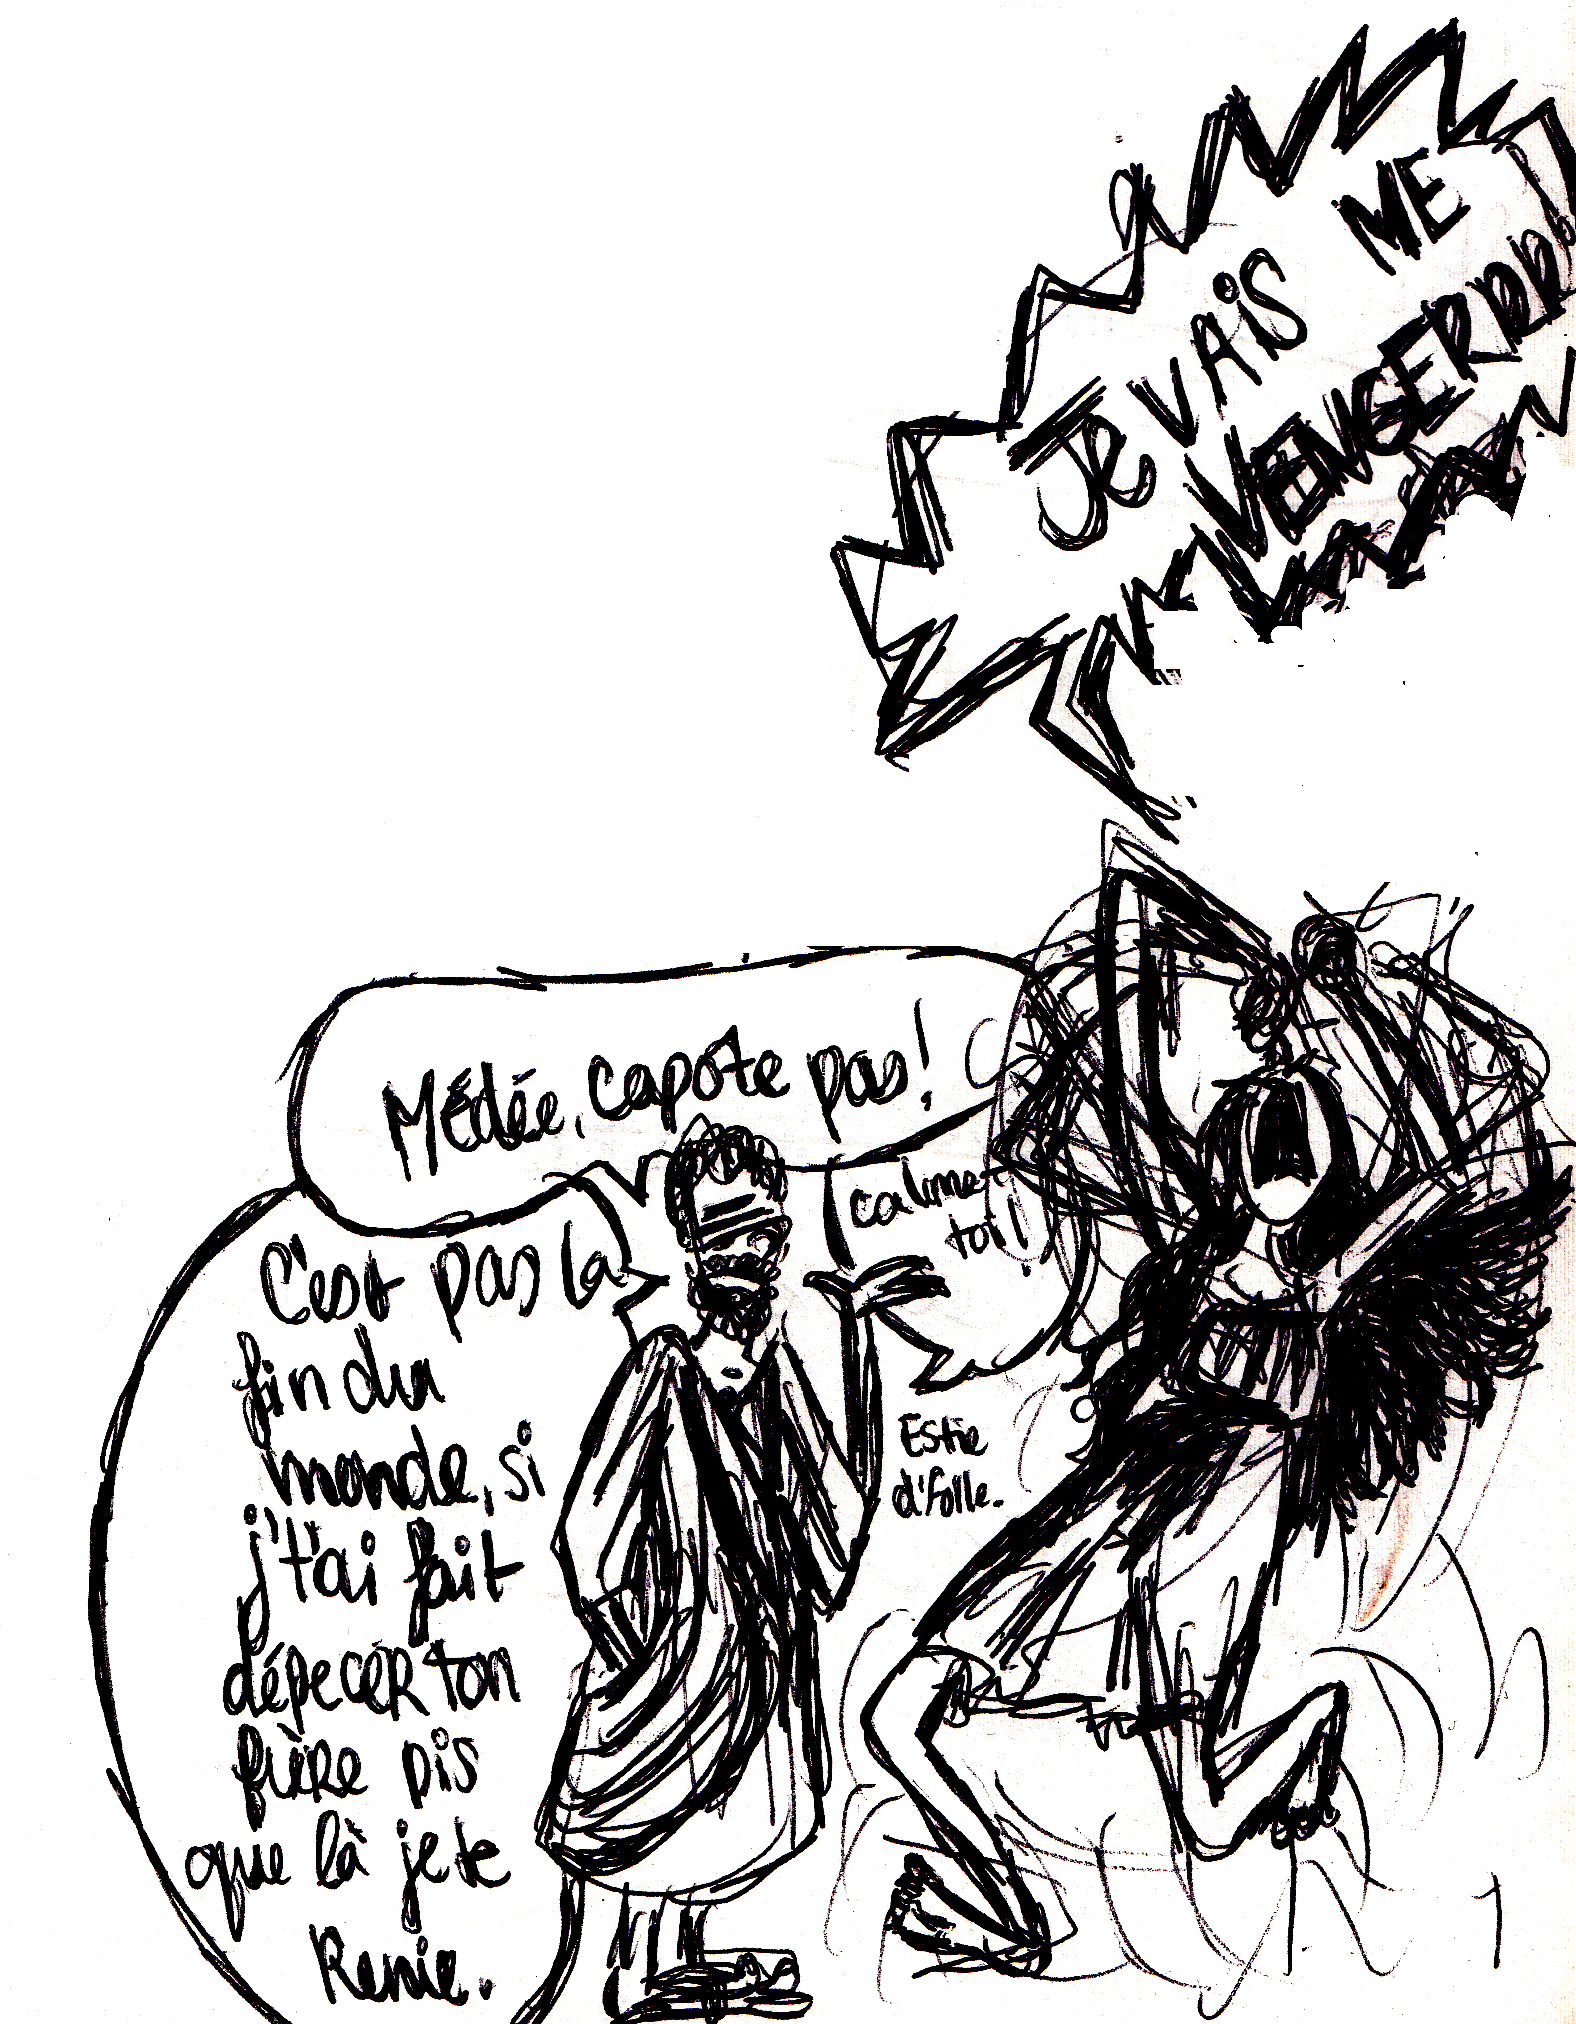 JE VAIS ME
VENGERRRR!
Médée, capote pas!
calme-
toi!
C'est pas la
fin du
monde, si
j't'ai fait
dépecer ton
frère pis
que là je te
Renie.
Estie
d'folle.